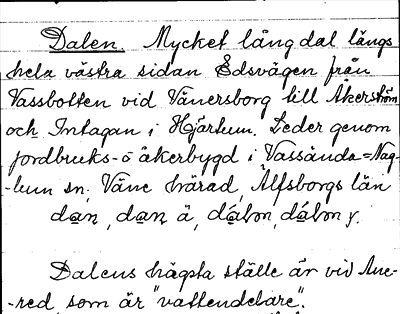 Dalen. Mycket lång dal längs
hela västra sidan Edsvägen från
Vassbotten vid Vänersborg till Åkerström
och Intagan i Hjärtum. Leder genom
jordbruks- o åkerbygd i Vassända=Nag-
-lum sn, Väne härad, Älfsborgs län
dan, dan å,
Dalens högsta ställe är vid Ane-
-red, som är "vattendelare".